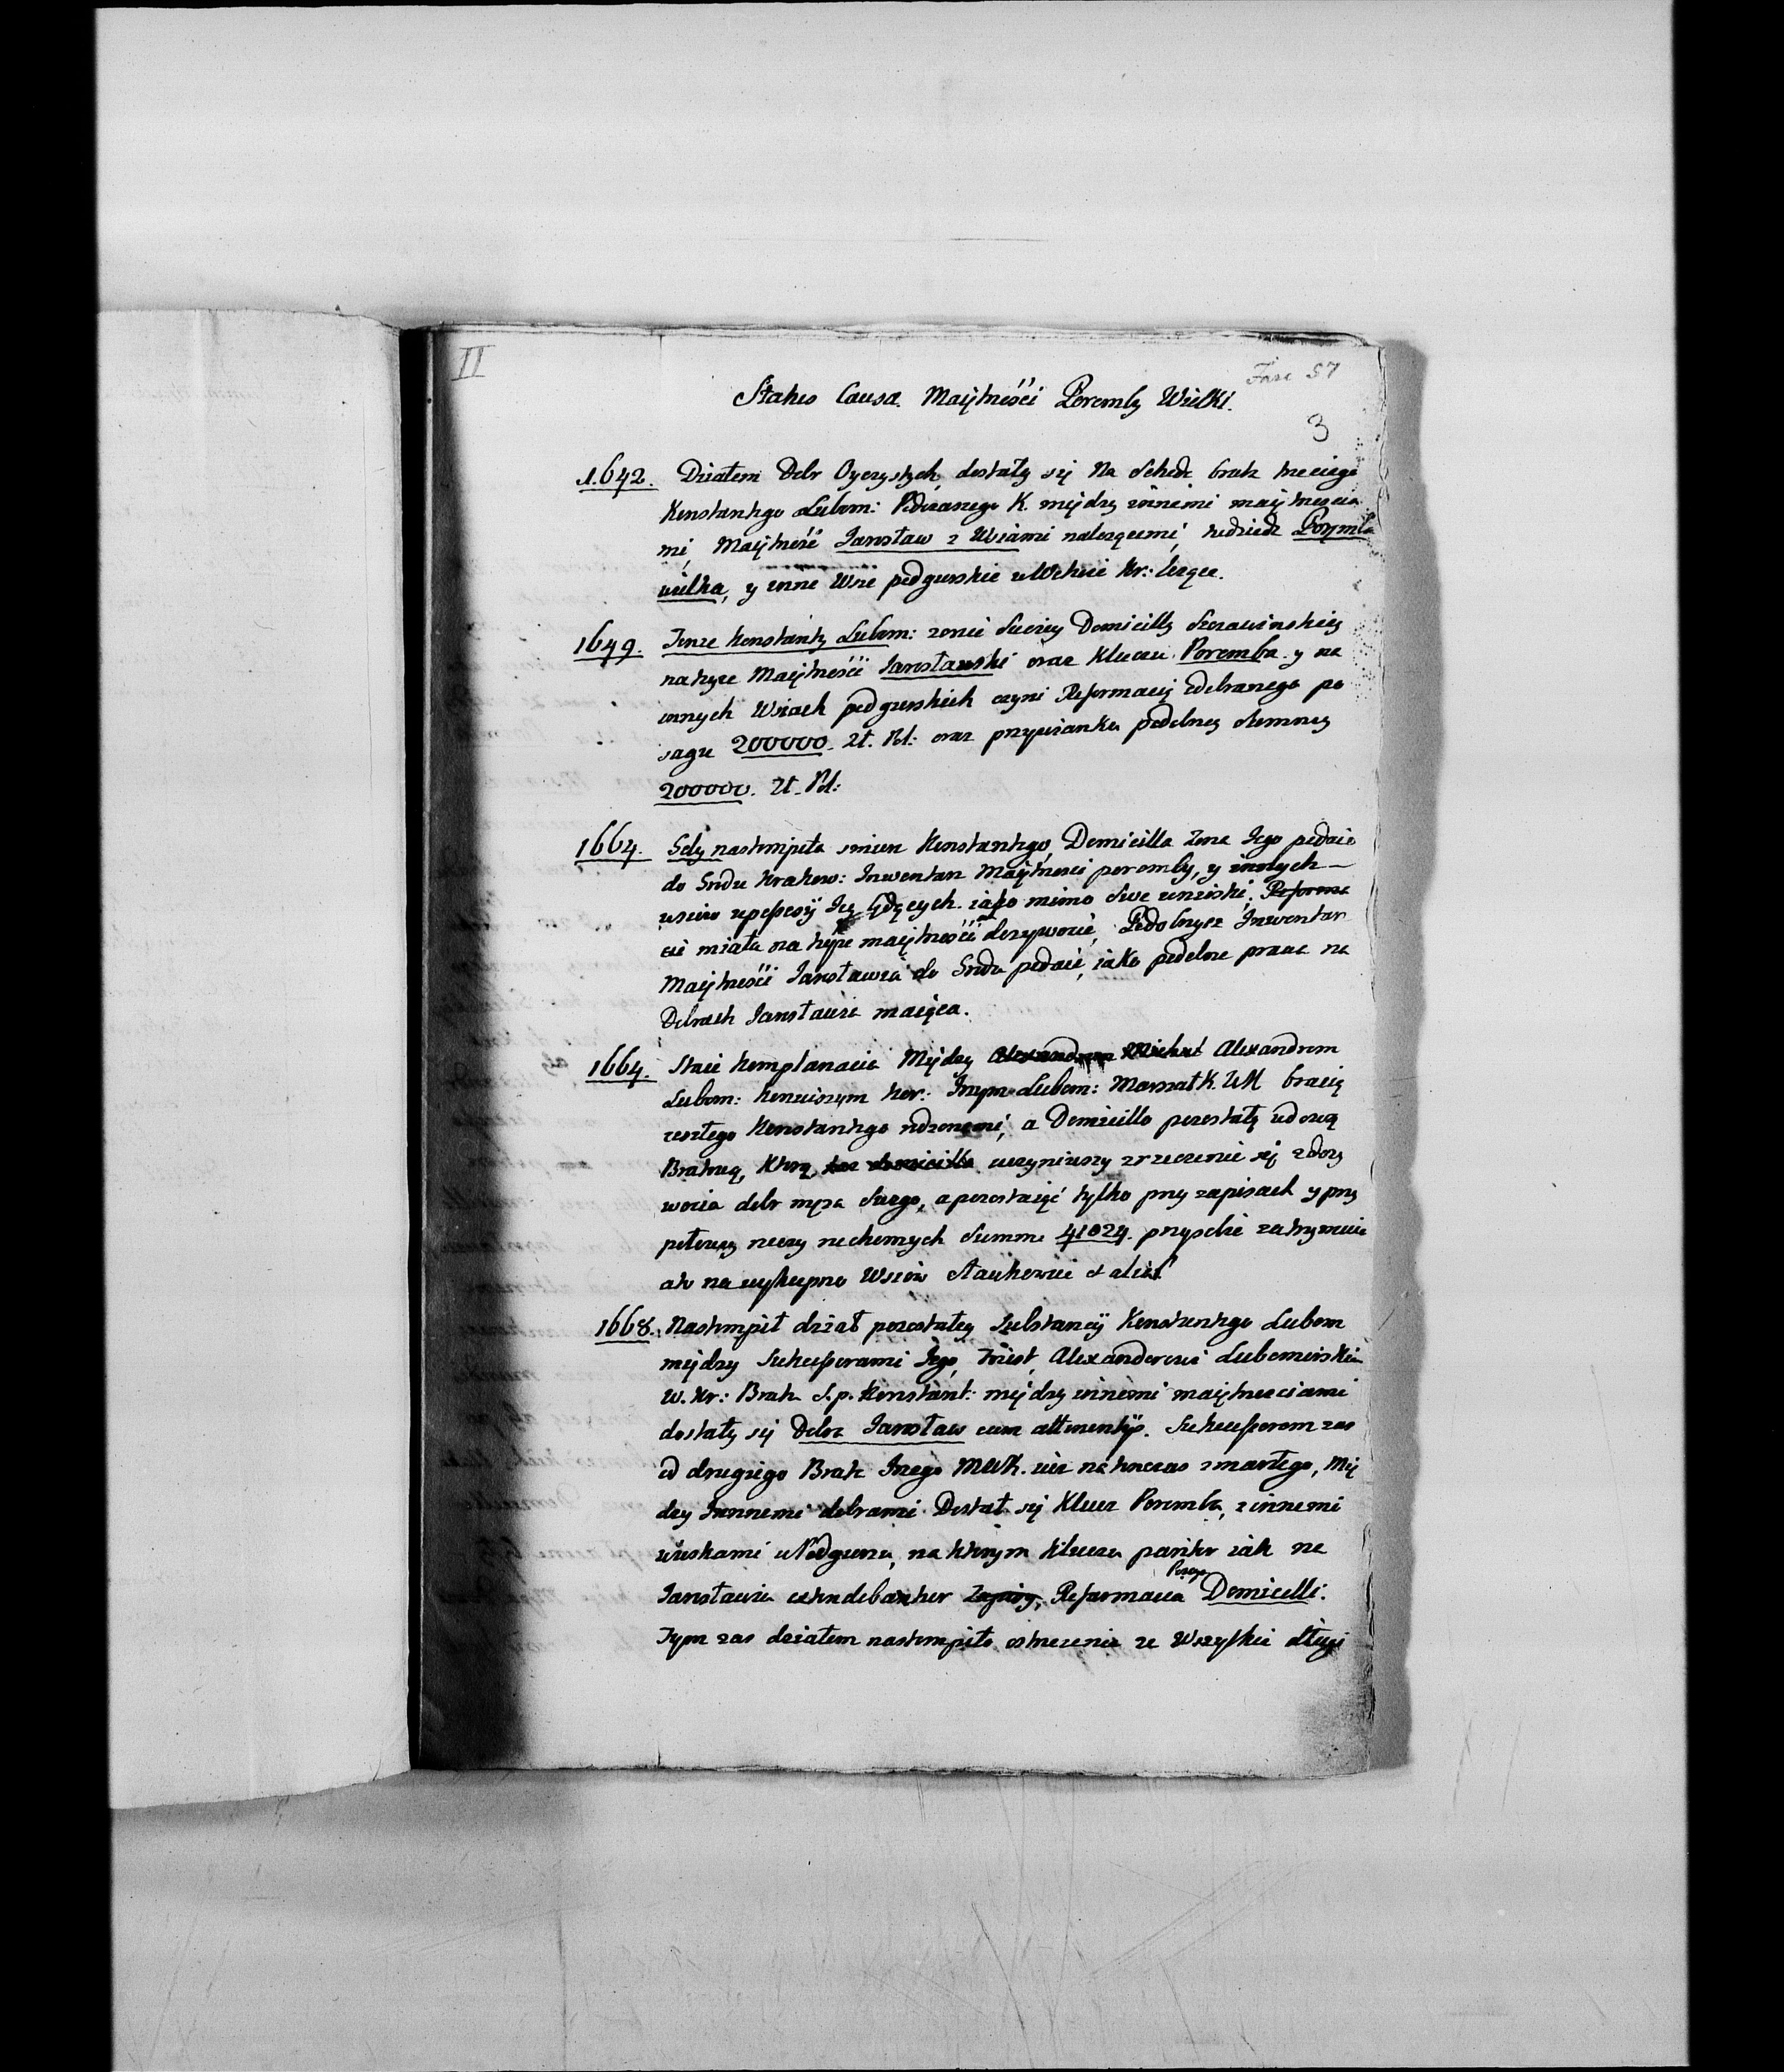 II
Fasc 57
Status Causa Maiętnośći Poremby Wielki.
3
1642. Działem Dobr Oyczystych, dostały się Na Schede brata trzeciego
Konstantego Lubom: Podczaszego K. między innemi maiętnoscia
mi, Maiętność Jarosław z Wsiami nalezącemi, tudziesz Poręmba
wielka, y inne Wsie podgurskie w Wtwie Kr: lezące.
1649. Tenze Konstanty Lubom: zonie Swoiey Domicilli Szczawinskiey
na teyze Maiętnośći Jarosławski oraz Kluczu Poremba y na
innych Wsiach podgurskich czyni Reformacyę odebranego po
sagu 200000. Zł. Pol: oraz przywianku podobney summy
200000. Zł. Pol:
1664. Gdy nastompiła smierc Konstantego, Domicilla zona Jego podaie
do Grodu Krakow: Inwentarz Maiętnosci poremby, y innych
wsiow w possesyi Jey będących. iako mimo Swe wnioski, Reforma
cie miała na teyze maiętnośći dozywocie, Podobnysz Inwentarz
Maiętnośći Jarosławia do Grodu podaie, iako podobne prawa na
Dobrach Jarosławiu maiąca.
1664. Staie Komplanacia Między Alexandrem Michał Alexandrem
Lubom: Koniuszym Kor: Jrzym Lubom: Marszałk. WK bracią
zeszłego Konstantego rodzonemi, a Domicillo pozostałą wdową
Bratową, Ktorą taz domicilla uczyniwszy zrzeczenie się z dozy
wocia dobr męza Swego, a pozostaiąć tylko przy zapisach y przy
połowey rzeczy ruchomych Summe 41024. przyszłie zatrzymuie
ato na wykupno Wsiow Stankowici et alias
1668. Nastompił dział pozostałey Substancyi Konstantego Lubom
między Sukcessorami Jego, To iest, Alexandrowi Lubomirskiem
W. Kr: Brata S.p. Konstant: między innemi maiętnosciami
dostały się Dobra Jarosław cum attinentijs. Sukcessorom zas
od drugiego Brata Jrzego MWK. iuz natonczas zmarłego, Mię
dzy Innnemi dobrami Dostał się Klucz Poremba, z innemi
wioskami w Podgurzu, na Ktorym Kluczu pariter iak na
Jarosławiu extradebantur Zapisy, Reformacia Posagu Domicelli.
Tym zas działem nastompiło ostrzezenie ze Wszystkie długi